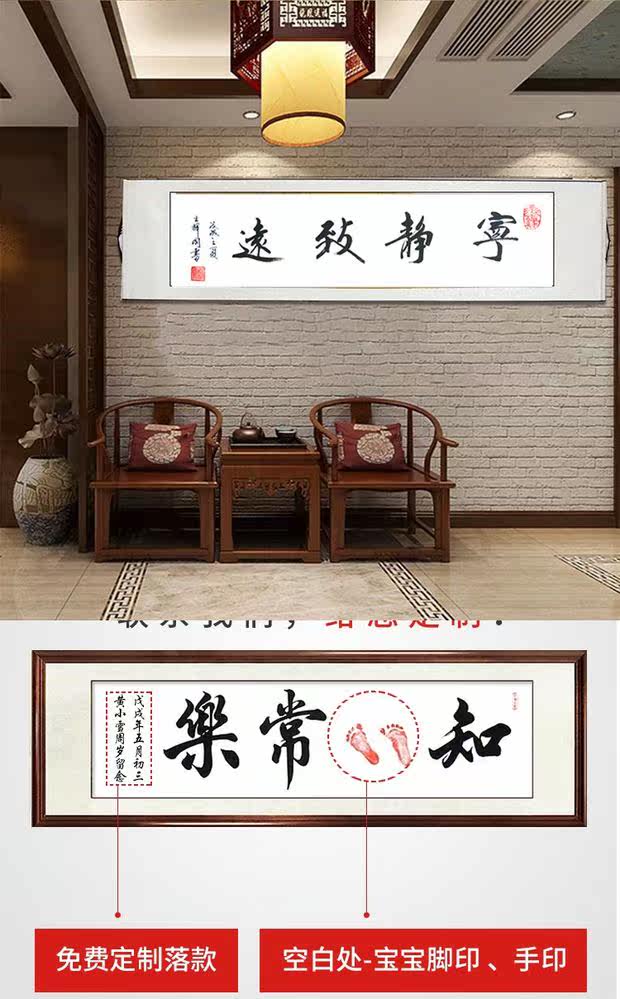 寧靜致遠
知常樂
戊戌年五月初三
黄小雪周岁留念
免费定制落款
空白处-宝宝脚印、手印